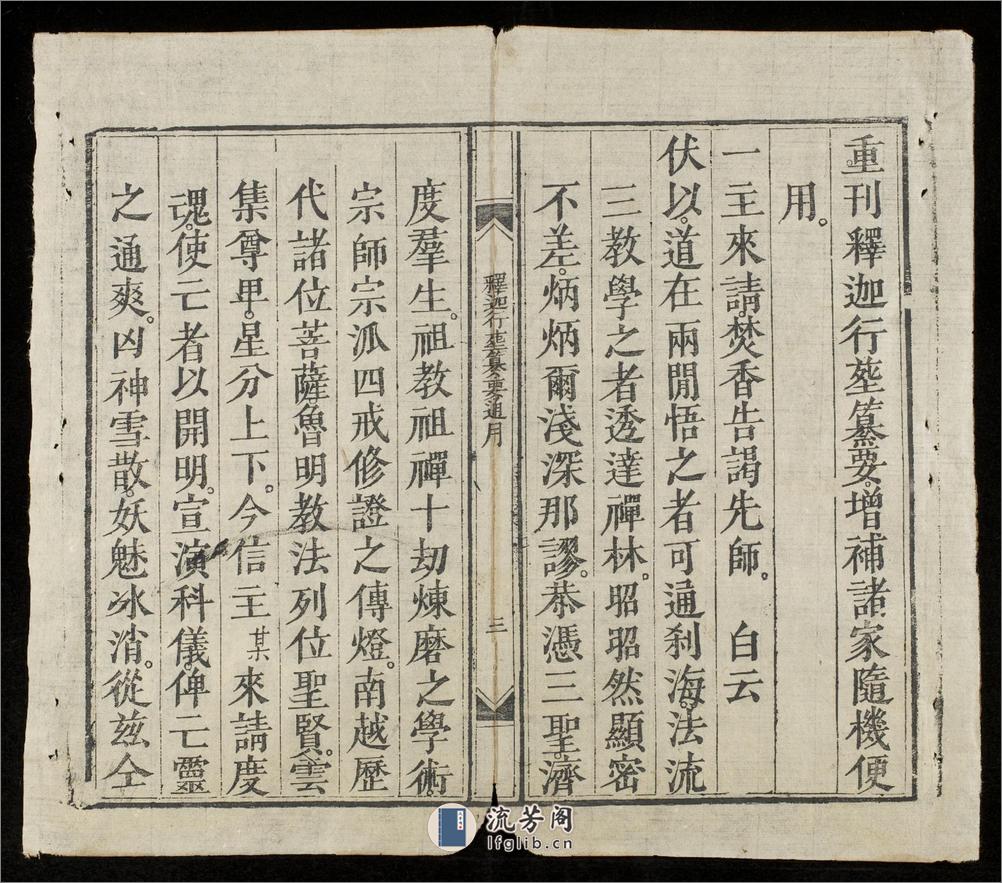 重刊釋迦行塟纂要。增補諸家隨機便
用。
一主來請。焚香告謁先師。 白云
伏以。道在兩閒悟之者可通刹海。法流
三教學之者透達禪林。昭昭然顯密
不差。炳炳爾淺深那謬。恭憑三聖。濟
釋迦行塟纂要通用 三
度羣生。祖教祖禪十劫煉磨之學術
宗師宗派四戒修證之傳燈。南越歷
代諸位菩薩魯明教法列位聖賢。雲
集尊卑。星分上下。今信主某來請度
魂。使亡者以開明。宣演科儀。俾亡靈
之通爽。凶神雪散。妖魅冰消。從茲仝
流芳阁
lfglib.cn